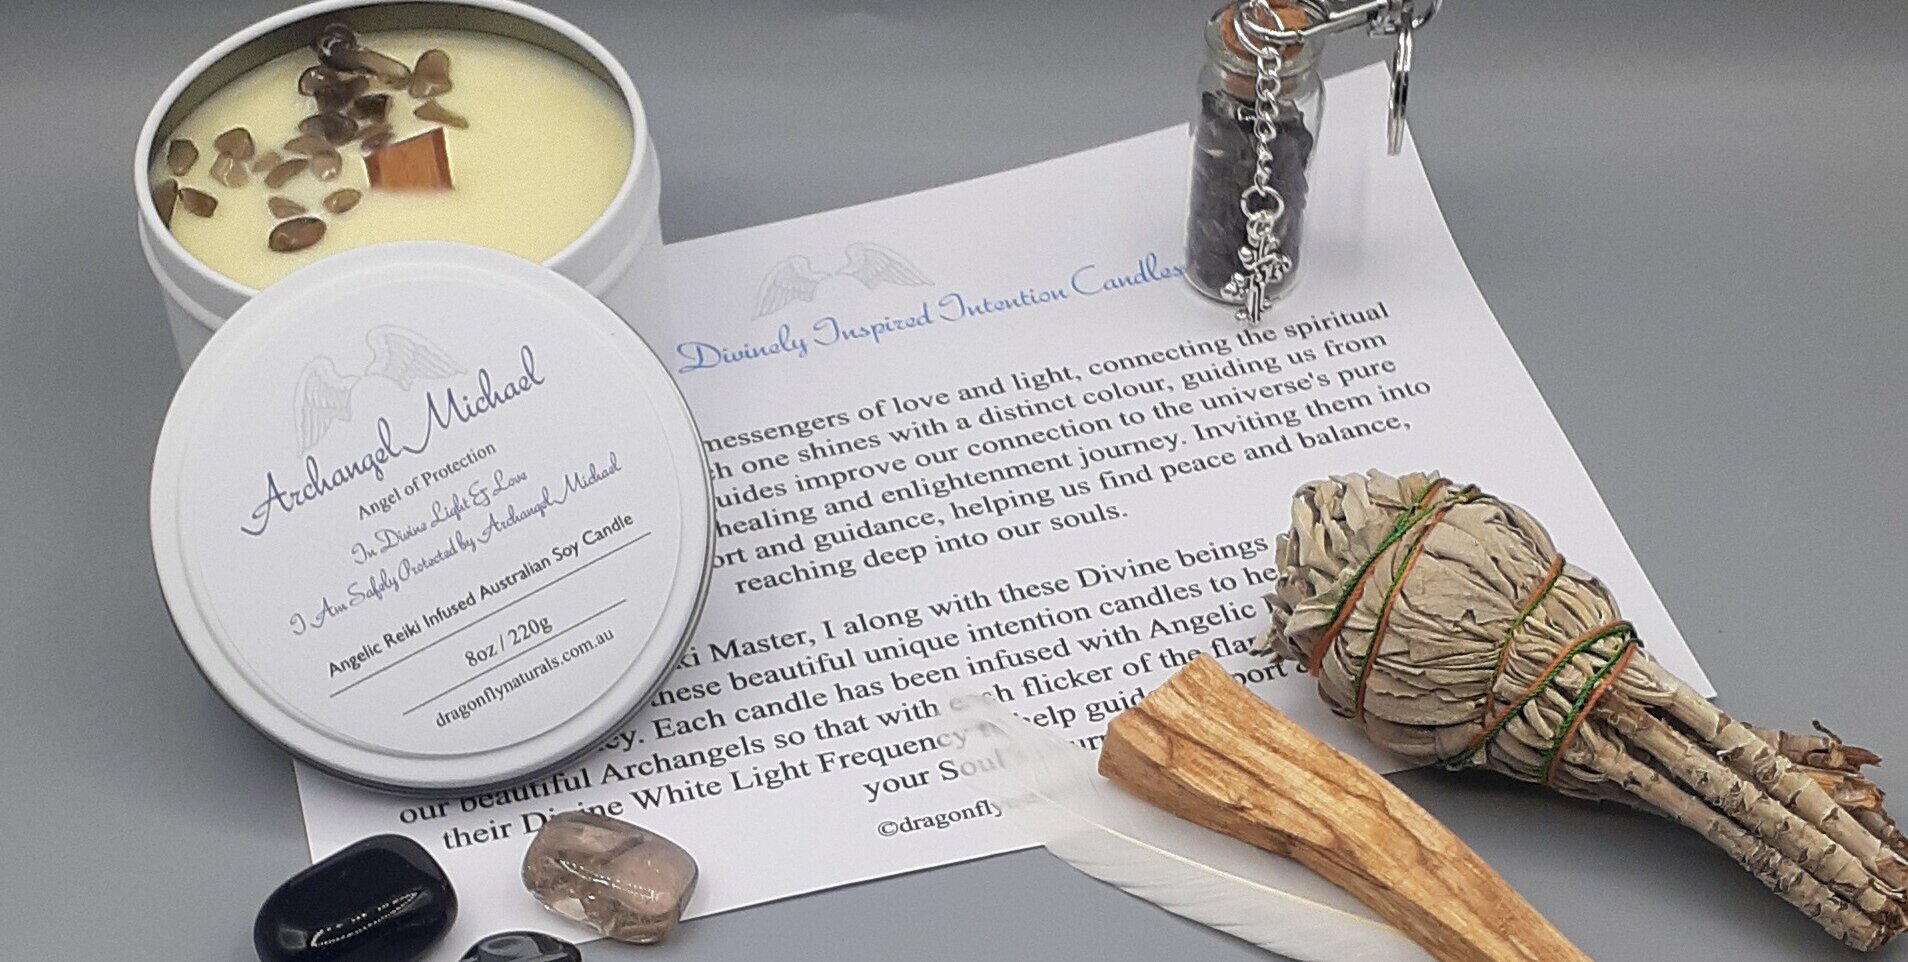 Archangel Michael
Angel of Protection
In Divine Light & Love
I Am Safely Protected by Archangel Michael
Angelic Reiki Infused Australian Soy Candle
8oz / 220g
dragonflynaturals.com.au
Divinely Inspired Intention Candles
messengers of love and light, connecting the spiritual
one shines with a distinct colour, guiding us from
improve our connection to the universe's pure
healing and enlightenment journey. Inviting them into
and guidance, helping us find peace and balance,
reaching deep into our souls.
Master, I along with these Divine beings
these beautiful unique intention candles to
Each candle has been infused with Angelic
our beautiful Archangels so that with each flicker of the
their Divine White Light Frequency help
your Soul
©dragonfly